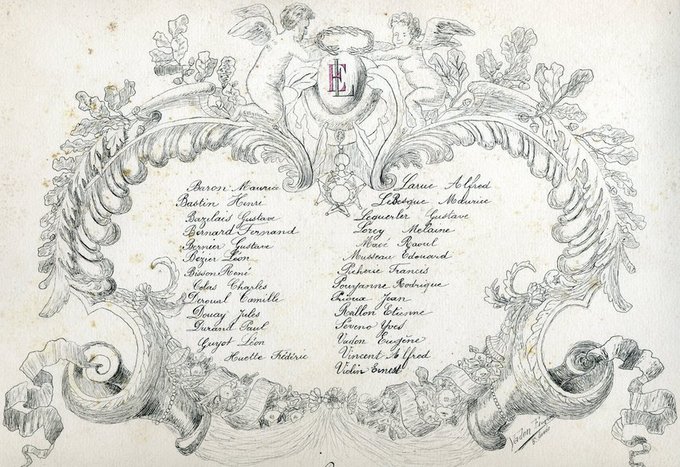 EL
Baron Maurice
Bastin Henri
Bazelais Gustave
Bernard Fernand
Bernier Gustave
Bezier Léon
Bisson René
Colas Charles
Deroual Camille
Douay Jules
Durand Paul
Guyot Léon
Huette Frédéric
Larue Alfred
LeBesque Maurice
Leguerler Gustave
Lorcy Melaine
Macé Raoul
Musseau Edouard
Picherie Francis
Pouzanne Rodrigue
Prioux Jean
Rallon Etienne
Seveno Yves
Vadon Eugène
Vincent Alfred
Violin Ernest
Vadon